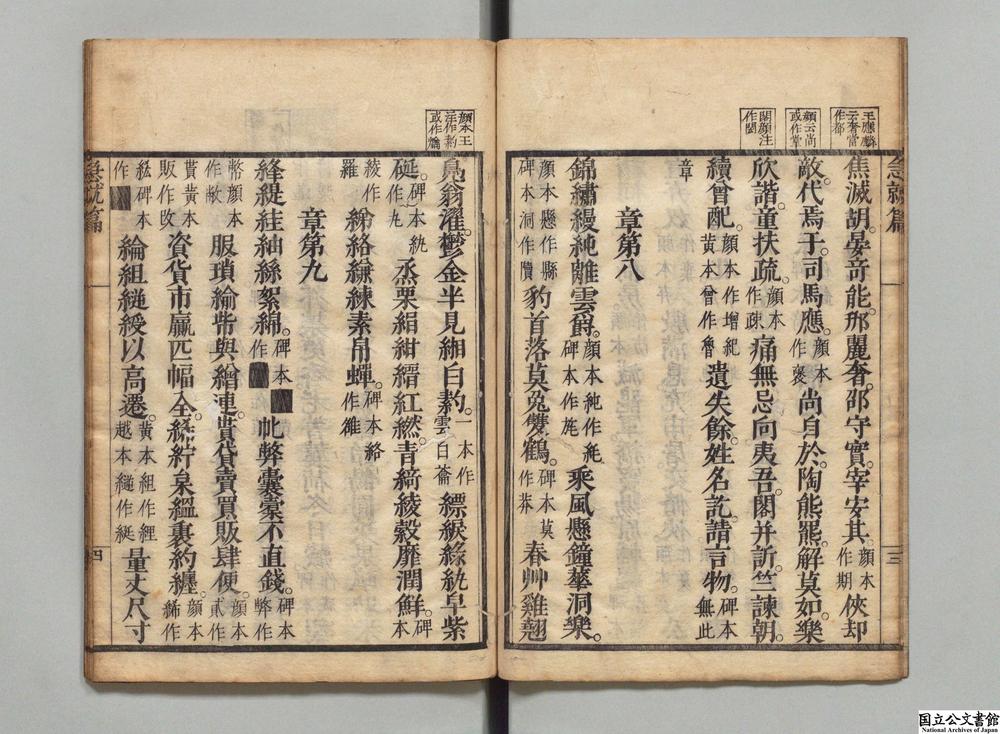 王應麟云奢當作都
顏云尚或作掌
閎顏注作閻
急就篇
三
焦滅胡。晏奇能。邢麗奢。邵守實。宰安其。顏本作期俠却
敵。代焉于。司馬應。顏本作褒尚自於。陶熊羆。解莫如。樂
欣諧。童扶疏。顏本作疎痛無忌。向夷吾。閎并訢。竺諫朝。
續曾配。顏本作增紀黃本曾作魯遺失餘。姓名訖。請言物。碑本無此
章
章第八
錦繡縵純離雲爵。顏本純作碑本作旄乘風懸鐘華洞樂。
顏本懸作縣碑本洞作豹首落莫兔雙鶴。碑本莫作莽春艸雞翹
顏本王注作䊽或作
鳧翁濯。鬱金半見緗白䊽。一本作雲白蘥縹綟綠紈皁紫
硟。碑本紈作九烝栗絹紺縉紅繎。青綺綾縠靡潤鮮。碑本
綾作羅綈絡縑練素帛蟬。碑本絡作雒
章第九
絳緹絓紬絲絮綿。碑本作弊囊橐不直錢。碑本弊作
幣顏本作敝服瑣緰幣與繒連。貰貸賣買販肆便。顏本貳作
貰黃本販作攺資貨市贏匹幅全。綌紵枲縕裹約纏。顏本作
綌碑本作綸組縌綬以高遷。黃本組作經越本縌作綖量丈尺寸
急就篇
四
国立公文書館
National Archives of Japan